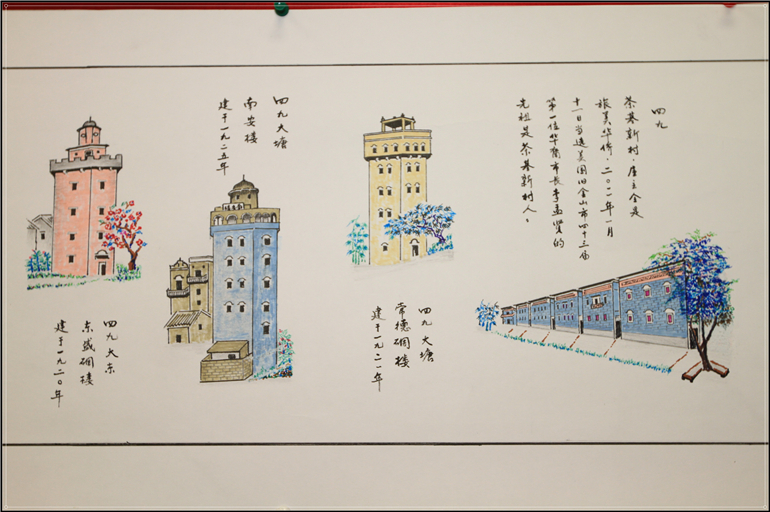 四九
茶基新村，屋主全是
旅美华侨，二〇一一年一月
十一日当选美国旧金山市四十三届
第一位华裔市长李孟贤的
先祖是茶基新村人。
四九大塘
常德碉楼
建于一九二一年
四九大塘
南安楼
建于一九二五年
四九大东
东盛碉楼
建于一九二〇年